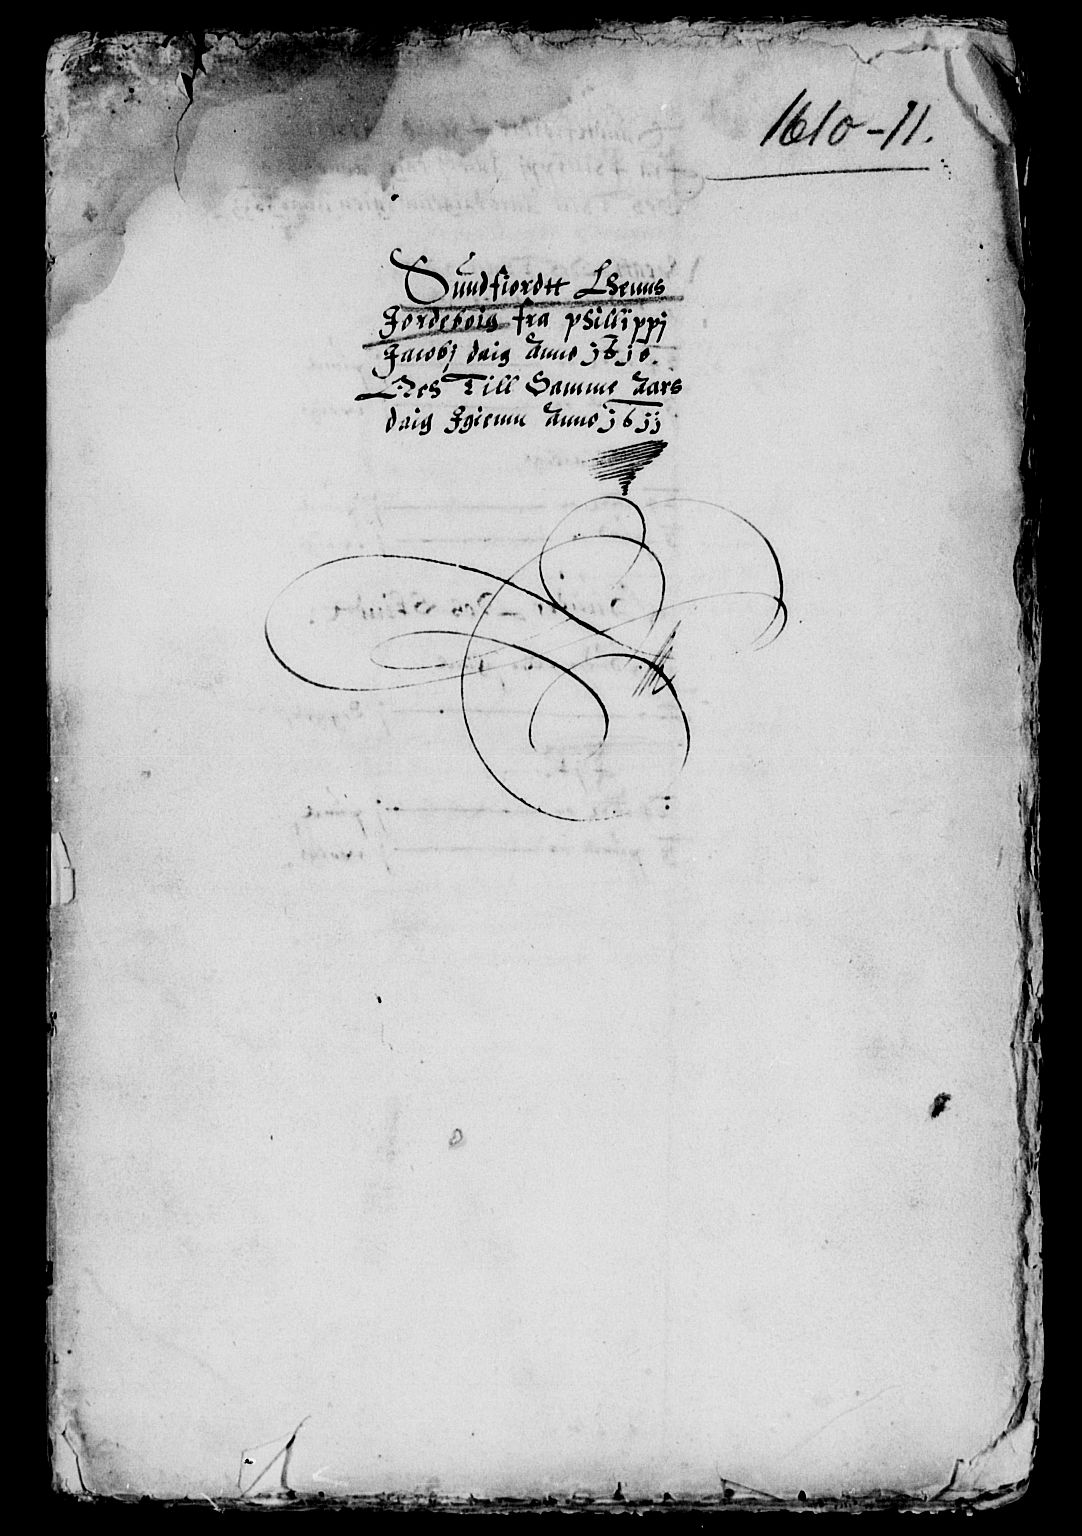 1610-11.
Sundfiordtt Lhenns
Jordeboig fra phillippj
Jacobj daig Anno j6jo.
Och Till Samme Aars
daig Jgienn Anno j6jj